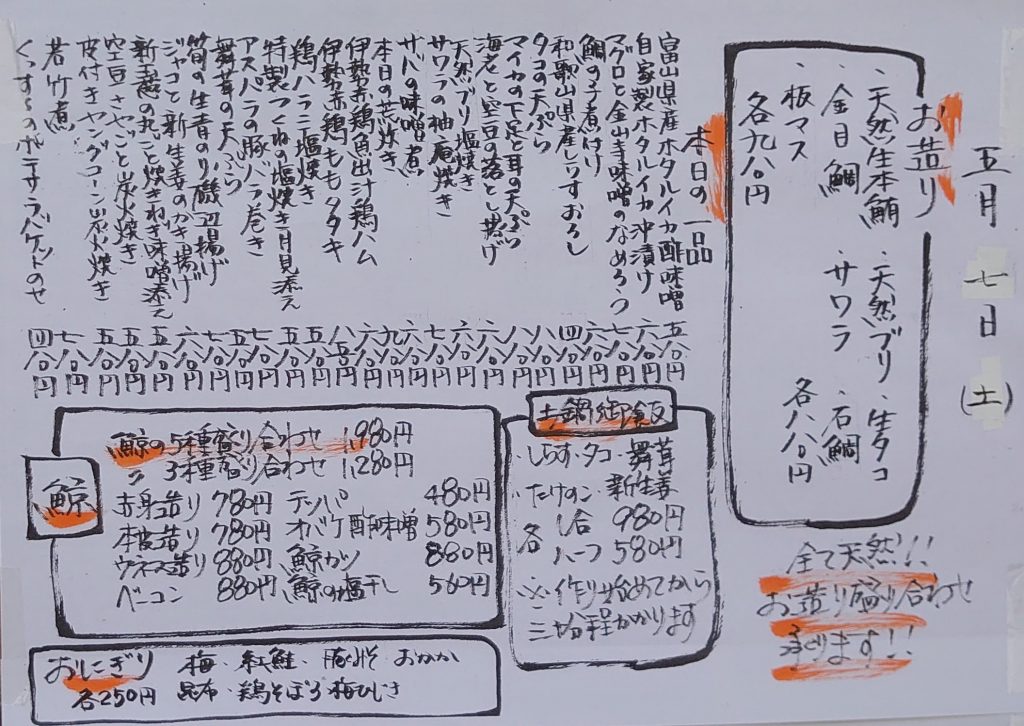 五月七日(土)
お造り
・天然生本鮪 ・天然ブリ ・生タコ
・金目鯛 ・サワラ ・石鯛
・板マス 各八八〇円
各九八〇円
全て天然!!
お造り盛り合わせ
承ります!!
本日の一品
富山県産ホタルイカ酢味噌 五八〇円
自家製ホタルイカ沖漬け 六八〇円
マグロと金山寺味噌のなめろう 七八〇円
鯛の子煮付け 六八〇円
和歌山県産しらすおろし 四八〇円
タコの天ぷら 八八〇円
マイカの下足と耳の天ぷら 八八〇円
海老と空豆の落とし揚げ 六八〇円
天然ブリ塩焼き 六八〇円
サワラの柚庵焼き 七八〇円
サバの味噌煮 六八〇円
本日の荒炊き 九八〇円
伊勢赤鶏角出汁鶏ハム 六八〇円
伊勢赤鶏ももタタキ 八五〇円
鶏ハラミ塩焼き 五八〇円
特製つくねの塩焼き月見添え 五八〇円
アスパラの豚バラ巻き 七八〇円
舞茸の天ぷら 五八〇円
筍の生青のり磯辺揚げ 七八〇円
ジャコと新生姜のかき揚げ 六八〇円
新玉葱の丸ごと焼きねぎ味噌添え 五八〇円
空豆さやごと炭火焼き 五八〇円
皮付きヤングコーン炭火焼き 五八〇円
若竹煮 七八〇円
ポテサラバケットのせ 四八〇円
土鍋御飯
・しらす・タコ・舞茸
・たけのこ・新生姜
各 一合 980円
ハーフ 580円
※作り始めてから
三十分程かかります
鯨
鯨の5種盛り合わせ 1,980円
〃 3種盛り合わせ 1,280円
赤身造り 780円 テッパ 480円
本皮造り 780円 オバケ酢味噌 580円
ウネス造り 880円 鯨カツ 880円
ベーコン 880円 鯨の塩干し 560円
おにぎり 梅・紅鮭・豚みそ おかか
各250円 昆布・鶏そぼろ・梅ひじき